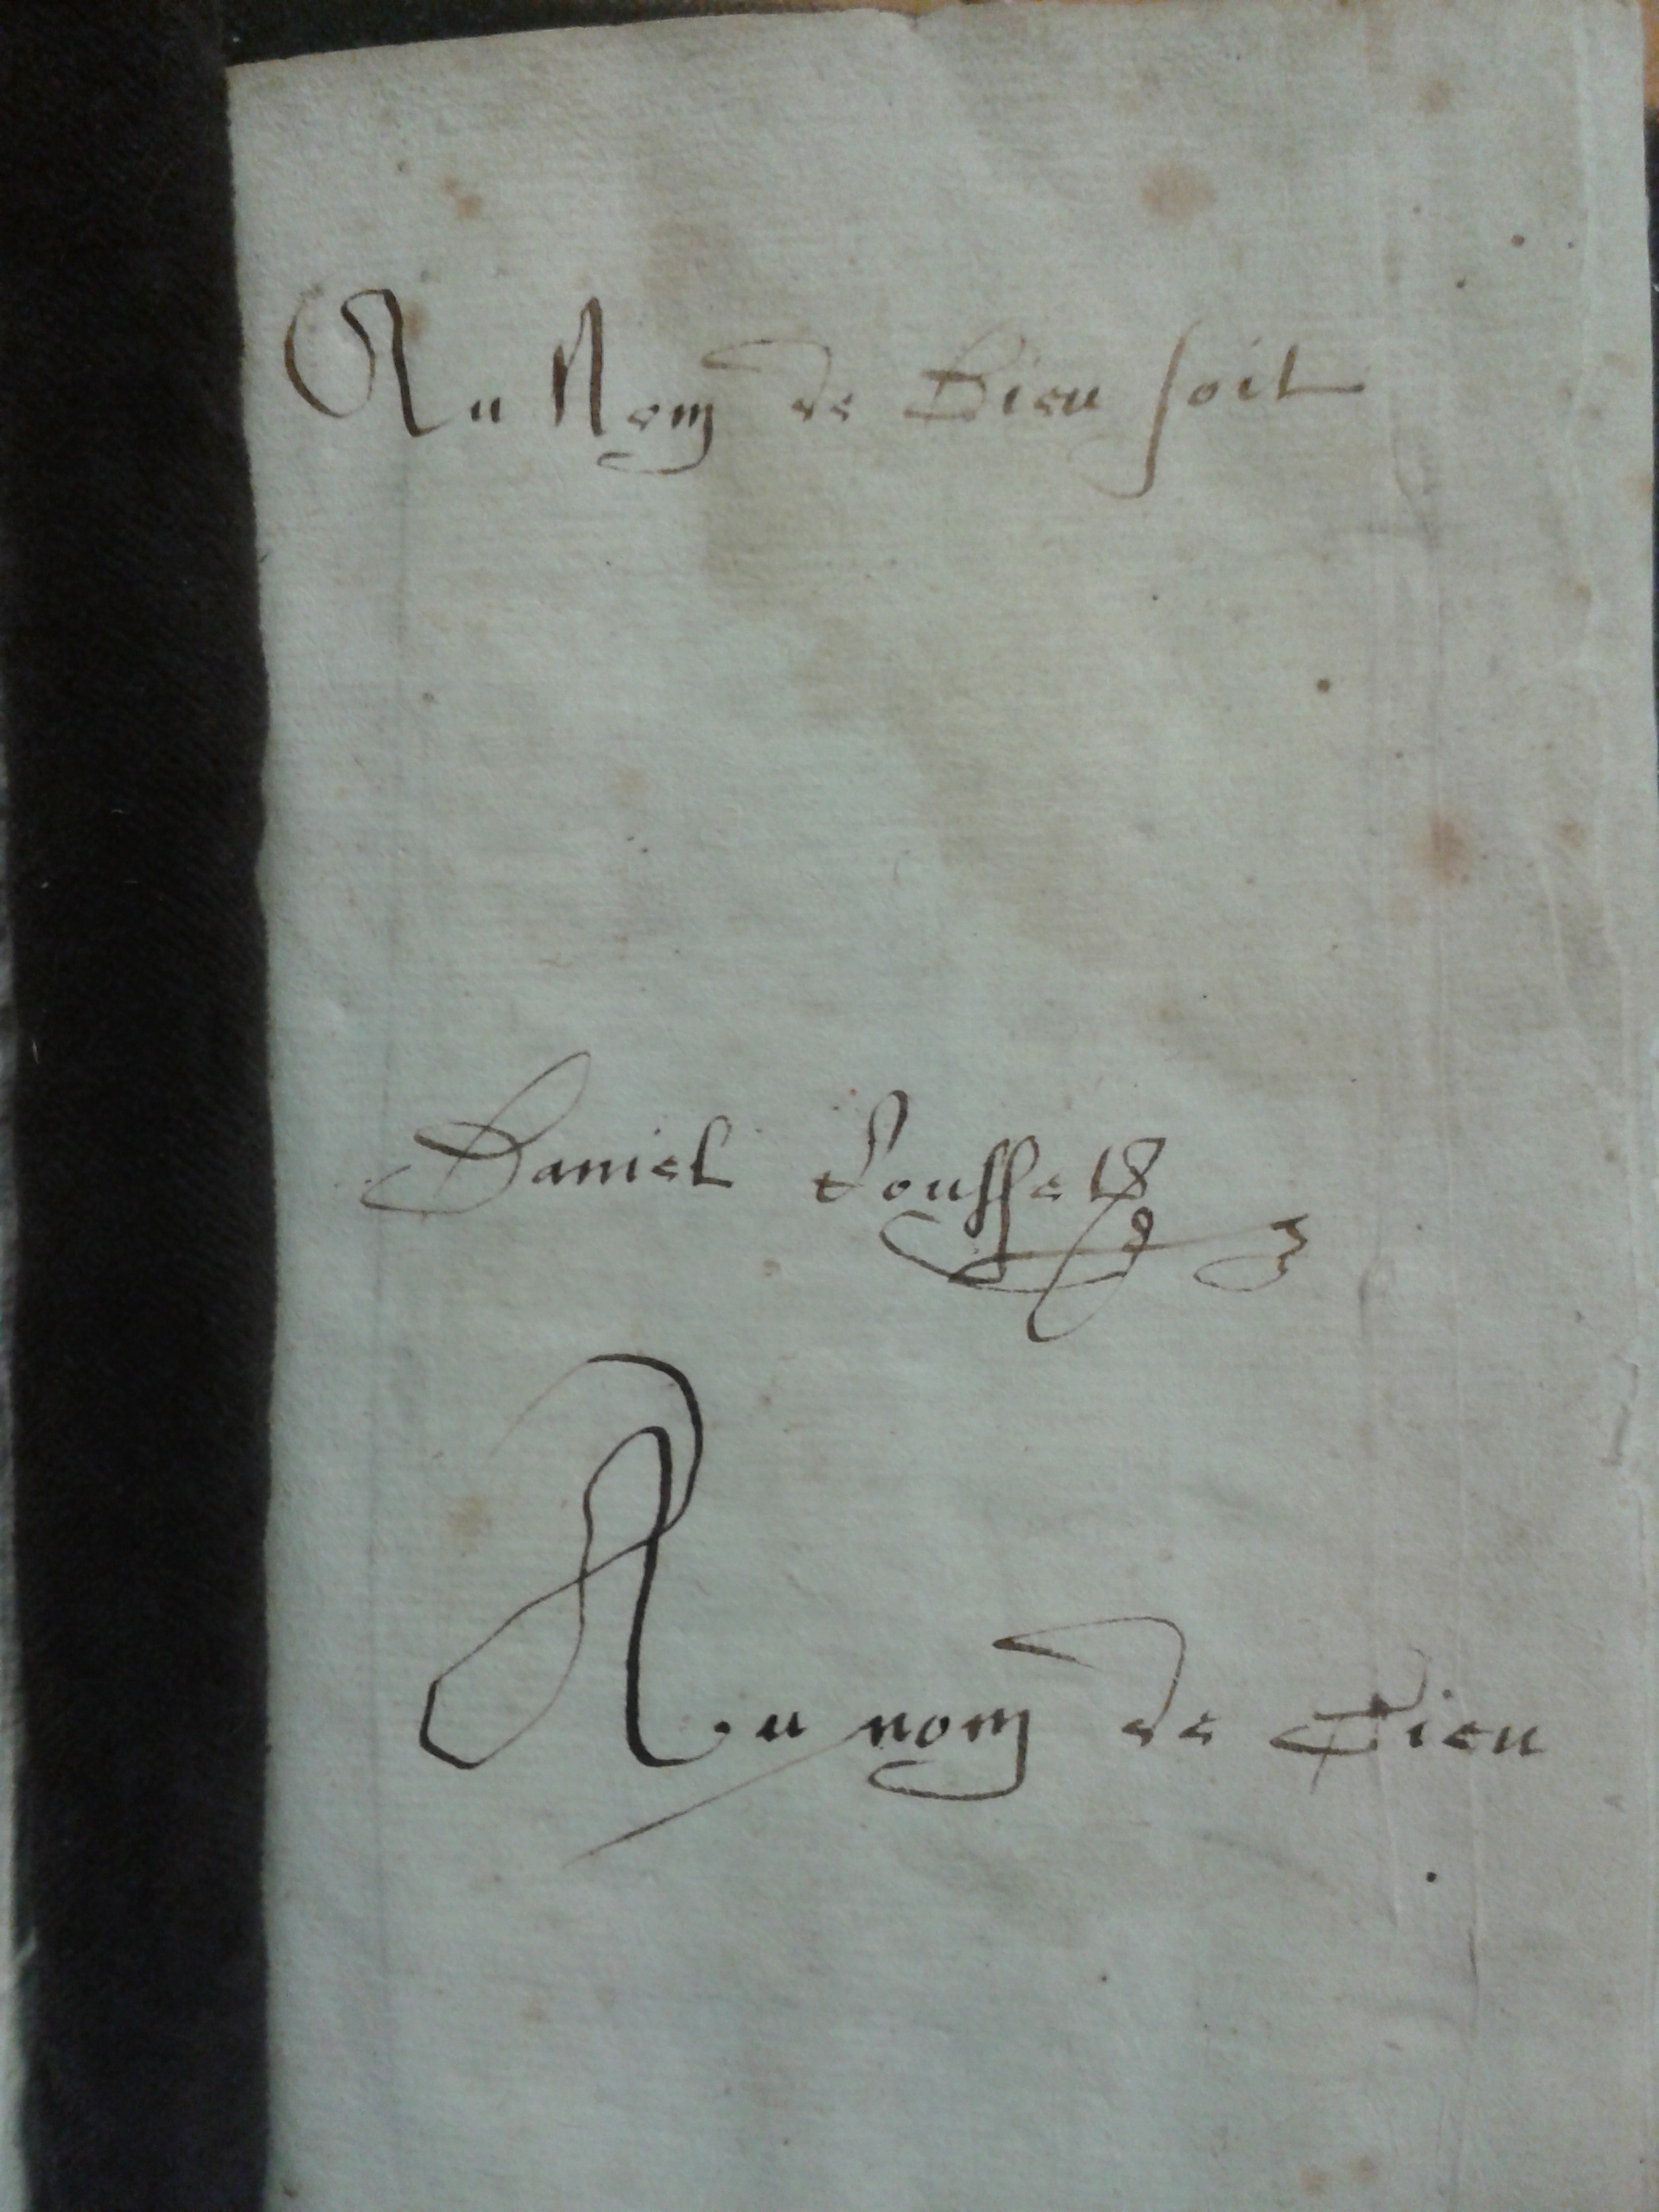 Au Nom de Dieu soit
Daniel Cousset
Au nom de Dieu